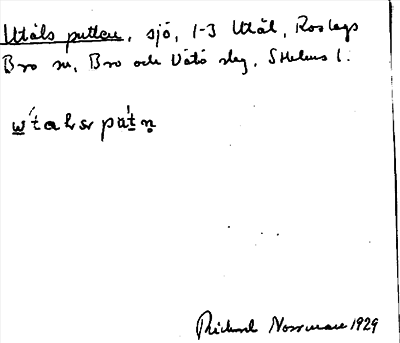 Utåls putten, sjö, 1-3 Utål, Roslags
Bro sn, Bro och Vätö slg, Sthlms l.
Richard Norrman 1929